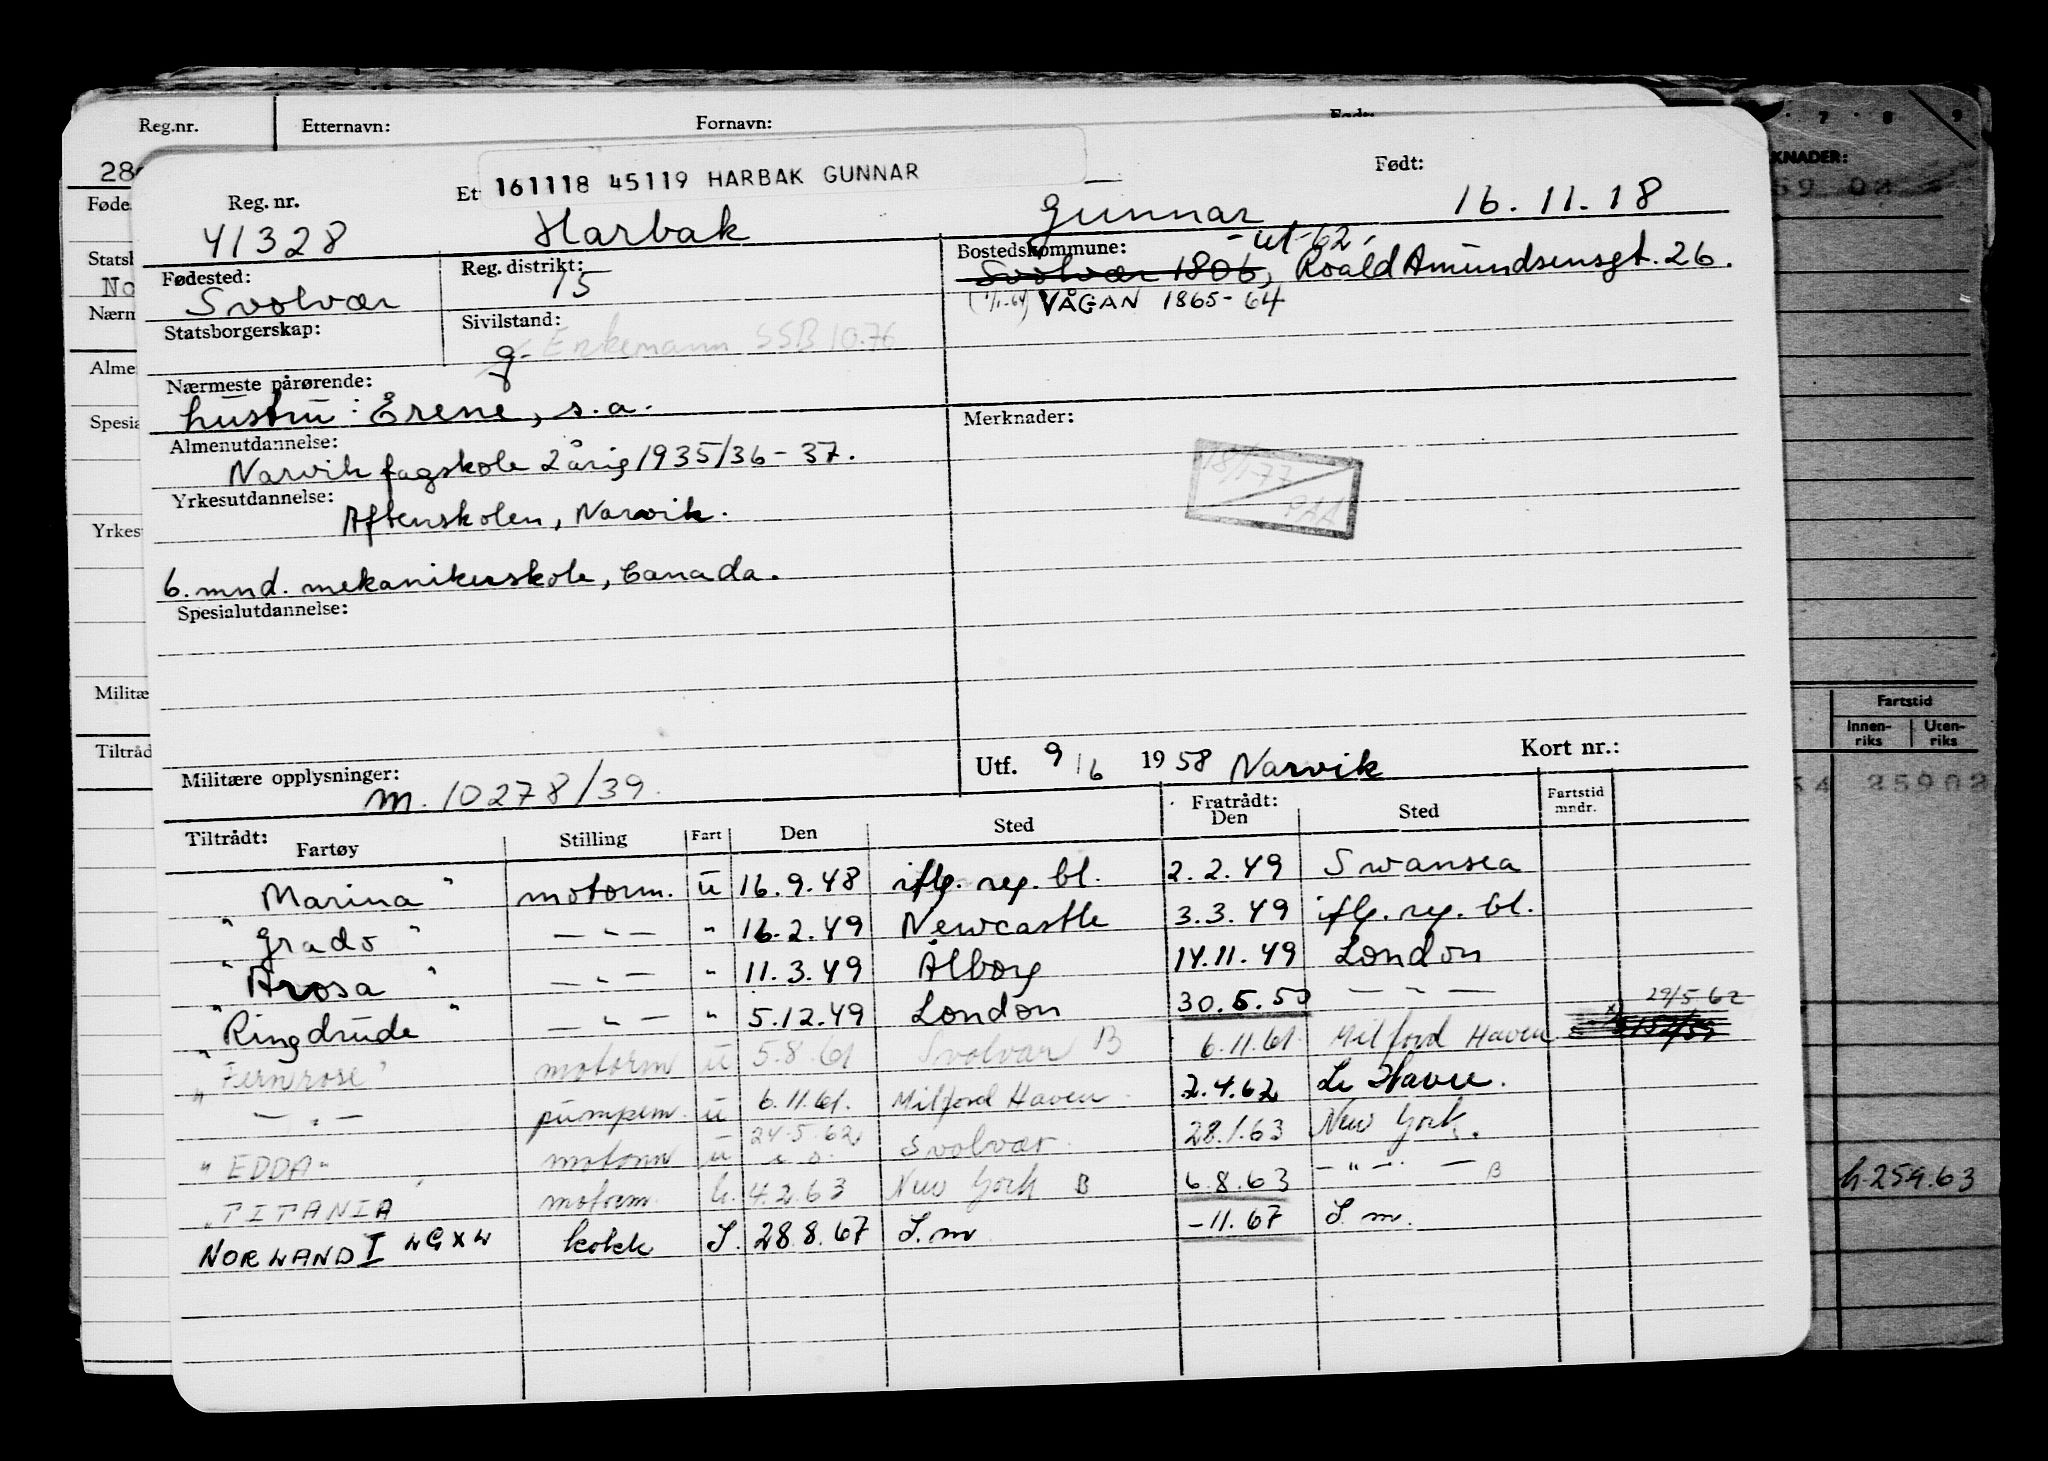 Reg.nr. Etternavn: Fornavn:
161118 45119 HARBAK GUNNAR
Reg. nr. Et Født:
41328 Harbak Gunnar 16.11.18
Fødested: Reg. distrikt: Bostedskommune: - ut -62 -
Svolvær 15 Svolvær 1806, Roald Amundsensgt. 26.
(1/1-64) VÅGAN 1865-64
Statsborgerskap: Sivilstand:
g. Enkemann SSB 10.76
Nærmeste pårørende:
hustru: Erene, s.a.
Merknader:
Almenutdannelse:
Narvik fagskole 2 årig 1935/36-37.
18/1-77
PAA
Yrkesutdannelse:
Aftenskolen, Narvik.
6. mnd. mekanikerskole, Canada.
Spesialutdannelse:
Utf. 9/6 1958 Narvik Kort nr.:
Militære opplysninger:
M. 10278/39.
Tiltrådt: Fartøy Stilling Fart Den Sted Fratrådt: Den Sted Fartstid mndr.
"Marina" motorm. u 16.9.48 iflg. reg. bl. 2.2.49 Swansea
"Grado" — " — " 16.2.49 Newcastle 3.3.49 iflg. reg. bl.
"Arosa" — " — " 11.3.49 Ålborg 14.11.49 London
"Ringdrude" — " — " 5.12.49 London 30.5.50 — " — 29/5.62
"Fernrose" motorm u 5.8.61 Svolvær B 6.11.61 Milford Haven
— " — pumpem. u 6.11.61. Milford Haven 2.4.62 Le Havre.
"EDDA" motorm u 24.5.62 Svolvær. 28.1.63 New York.
"TITANIA motorm. u. 4.2.63 New York B 6.8.63 — " — B
NORLAND I LGXL kokk S. 28.8.67 S.m -11.67 S.m.
KNADER:
Fartstid
Innen-riks Uten-riks
h.259.63